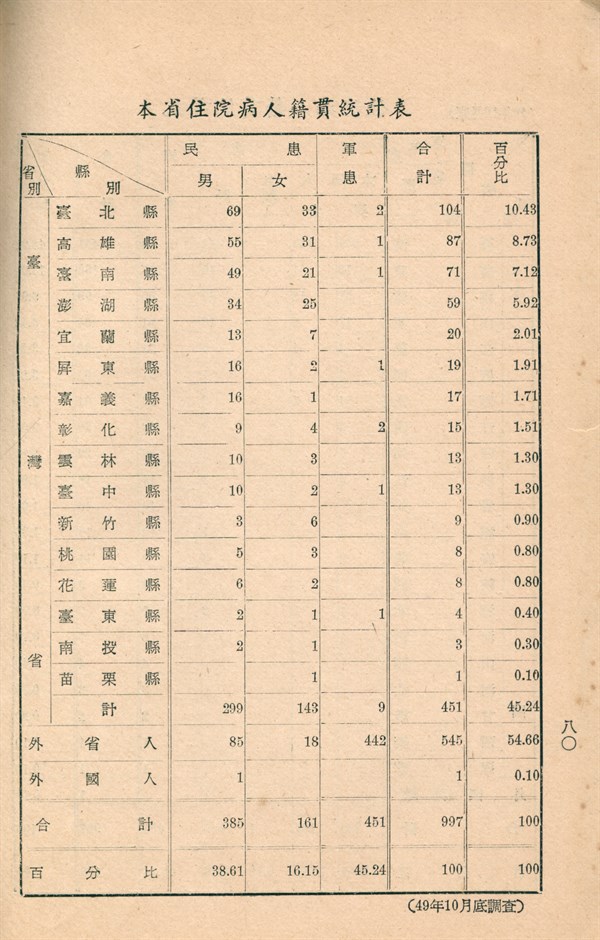 本省住院病人籍貫統計表
省別 縣別 民患 軍患 合計 百分比
男 女
臺灣省
臺北縣 69 33 2 104 10.43
高雄縣 55 31 1 87 8.73
臺南縣 49 21 1 71 7.12
澎湖縣 34 25 59 5.92
宜蘭縣 13 7 20 2.01
屏東縣 16 2 1 19 1.91
嘉義縣 16 1 17 1.71
彰化縣 9 4 2 15 1.51
雲林縣 10 3 13 1.30
臺中縣 10 2 1 13 1.30
新竹縣 3 6 9 0.90
桃園縣 5 3 8 0.80
花蓮縣 6 2 8 0.80
臺東縣 2 1 1 4 0.40
南投縣 2 1 3 0.30
苗栗縣 1 1 0.10
計 299 143 9 451 45.24
外省人 85 18 442 545 54.66
外國人 1 1 0.10
合計 385 161 451 997 100
百分比 38.61 16.15 45.24 100 100
(49年10月底調查)
八〇